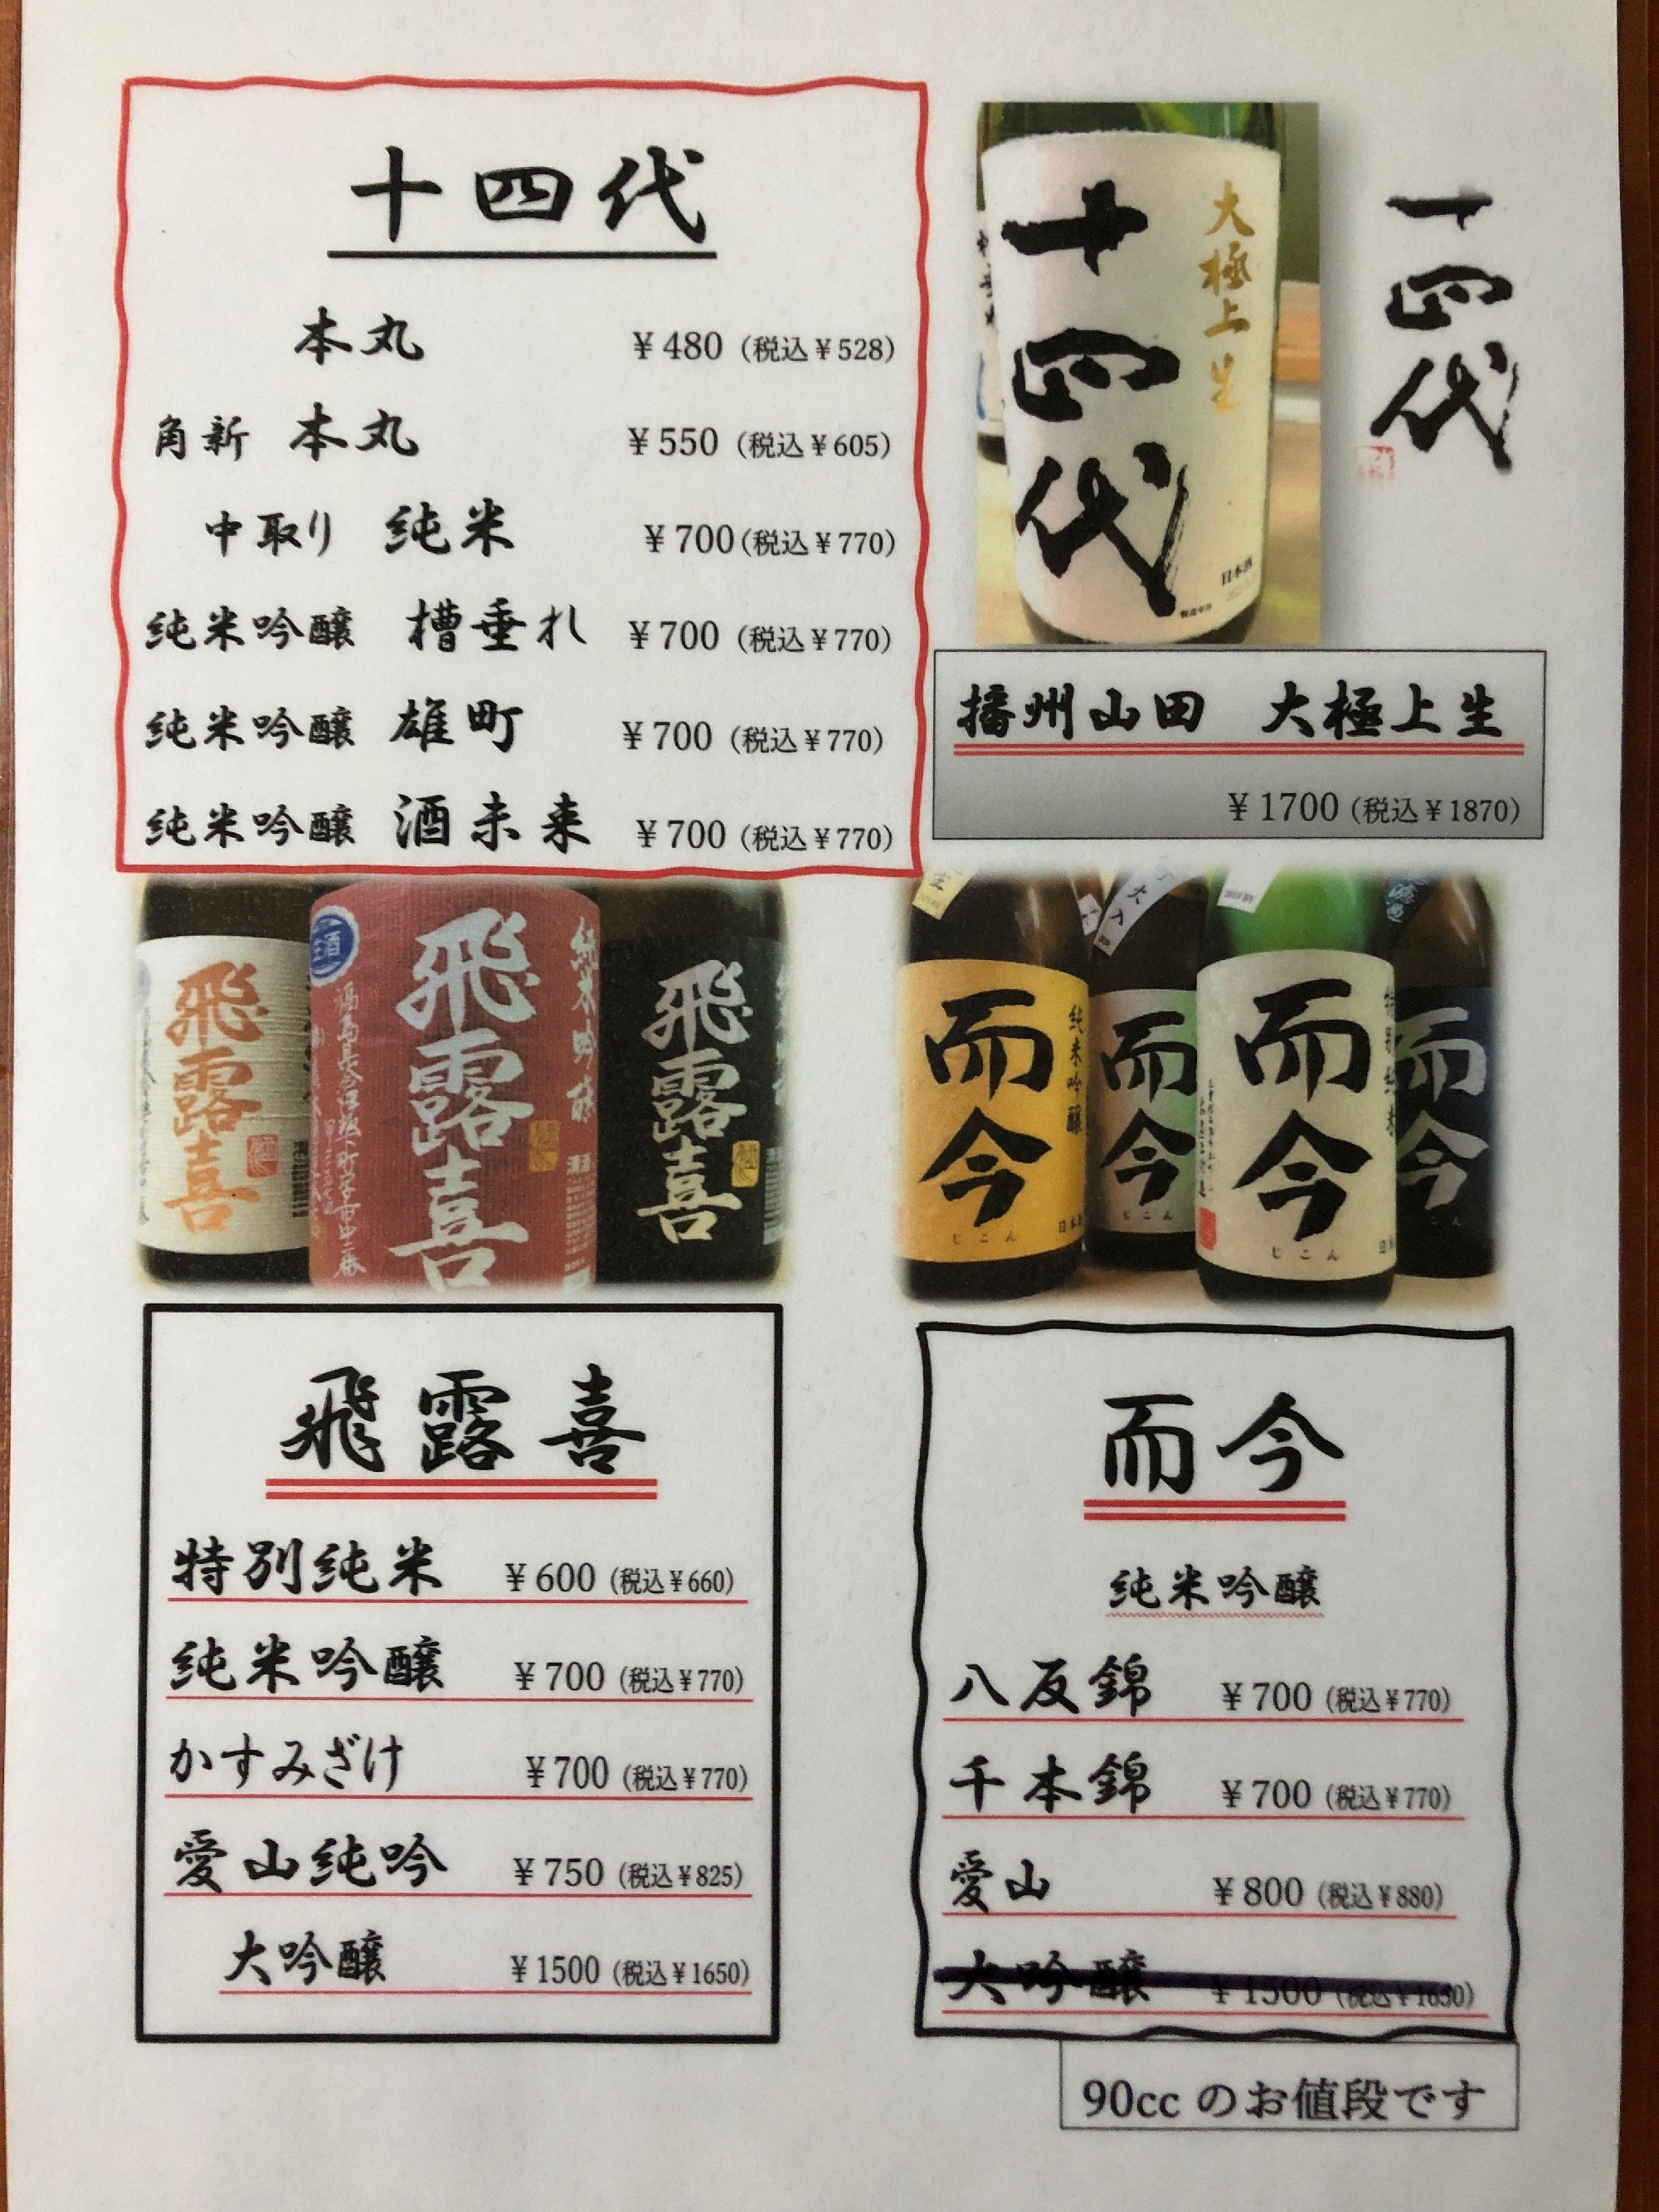 十四代
本丸 ¥480（税込¥528）
角新 本丸 ¥550（税込¥605）
中取り 純米 ¥700（税込¥770）
純米吟醸 槽垂れ ¥700（税込¥770）
純米吟醸 雄町 ¥700（税込¥770）
純米吟醸 酒未来 ¥700（税込¥770）
大極上生
十四代
日本酒
製造年月
十四代
播州山田 大極上生
¥1700（税込¥1870）
飛露喜
純米吟醸
飛露喜
飛露喜
純米吟醸
而今
じこん
而今
じこん
特別純米
而今
じこん
而今
飛露喜
特別純米 ¥600（税込¥660）
純米吟醸 ¥700（税込¥770）
かすみざけ ¥700（税込¥770）
愛山純吟 ¥750（税込¥825）
大吟醸 ¥1500（税込¥1650）
而今
純米吟醸
八反錦 ¥700（税込¥770）
千本錦 ¥700（税込¥770）
愛山 ¥800（税込¥880）
大吟醸 ¥1500（税込¥1650）
90cc のお値段です